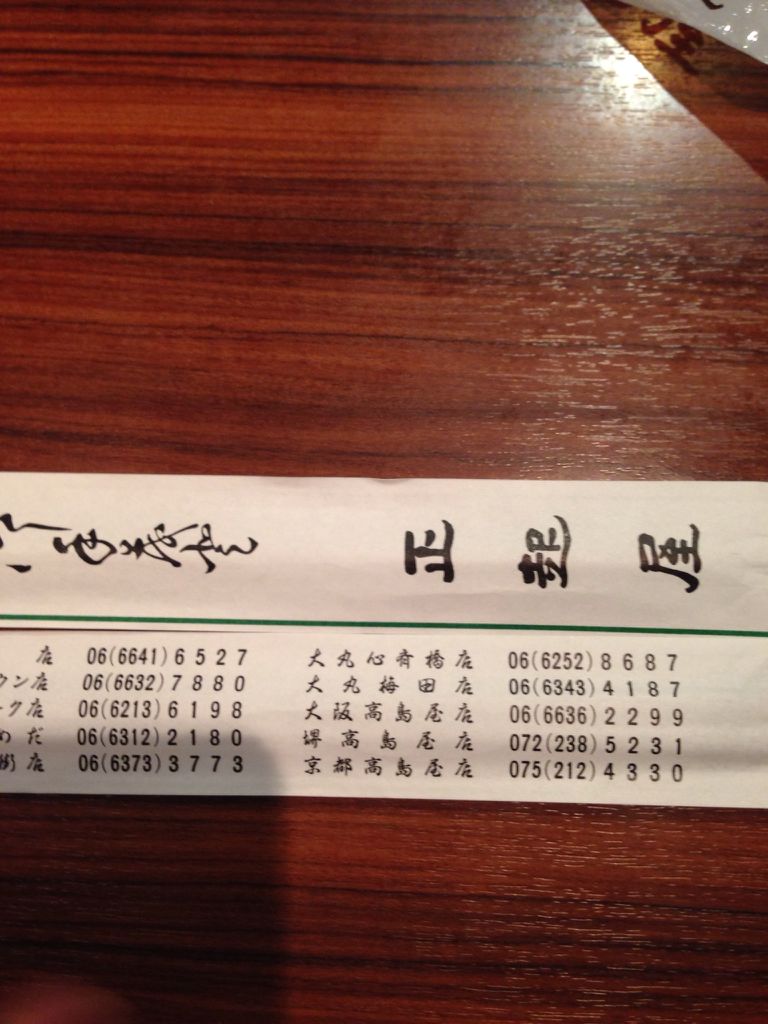 正起屋
店 06(6641)6527
ウン店 06(6632)7880
ーク店 06(6213)6198
めだ 06(6312)2180
店 06(6373)3773
大丸心斎橋店 06(6252)8687
大丸梅田店 06(6343)4187
大阪髙島屋店 06(6636)2299
堺髙島屋店 072(238)5231
京都髙島屋店 075(212)4330